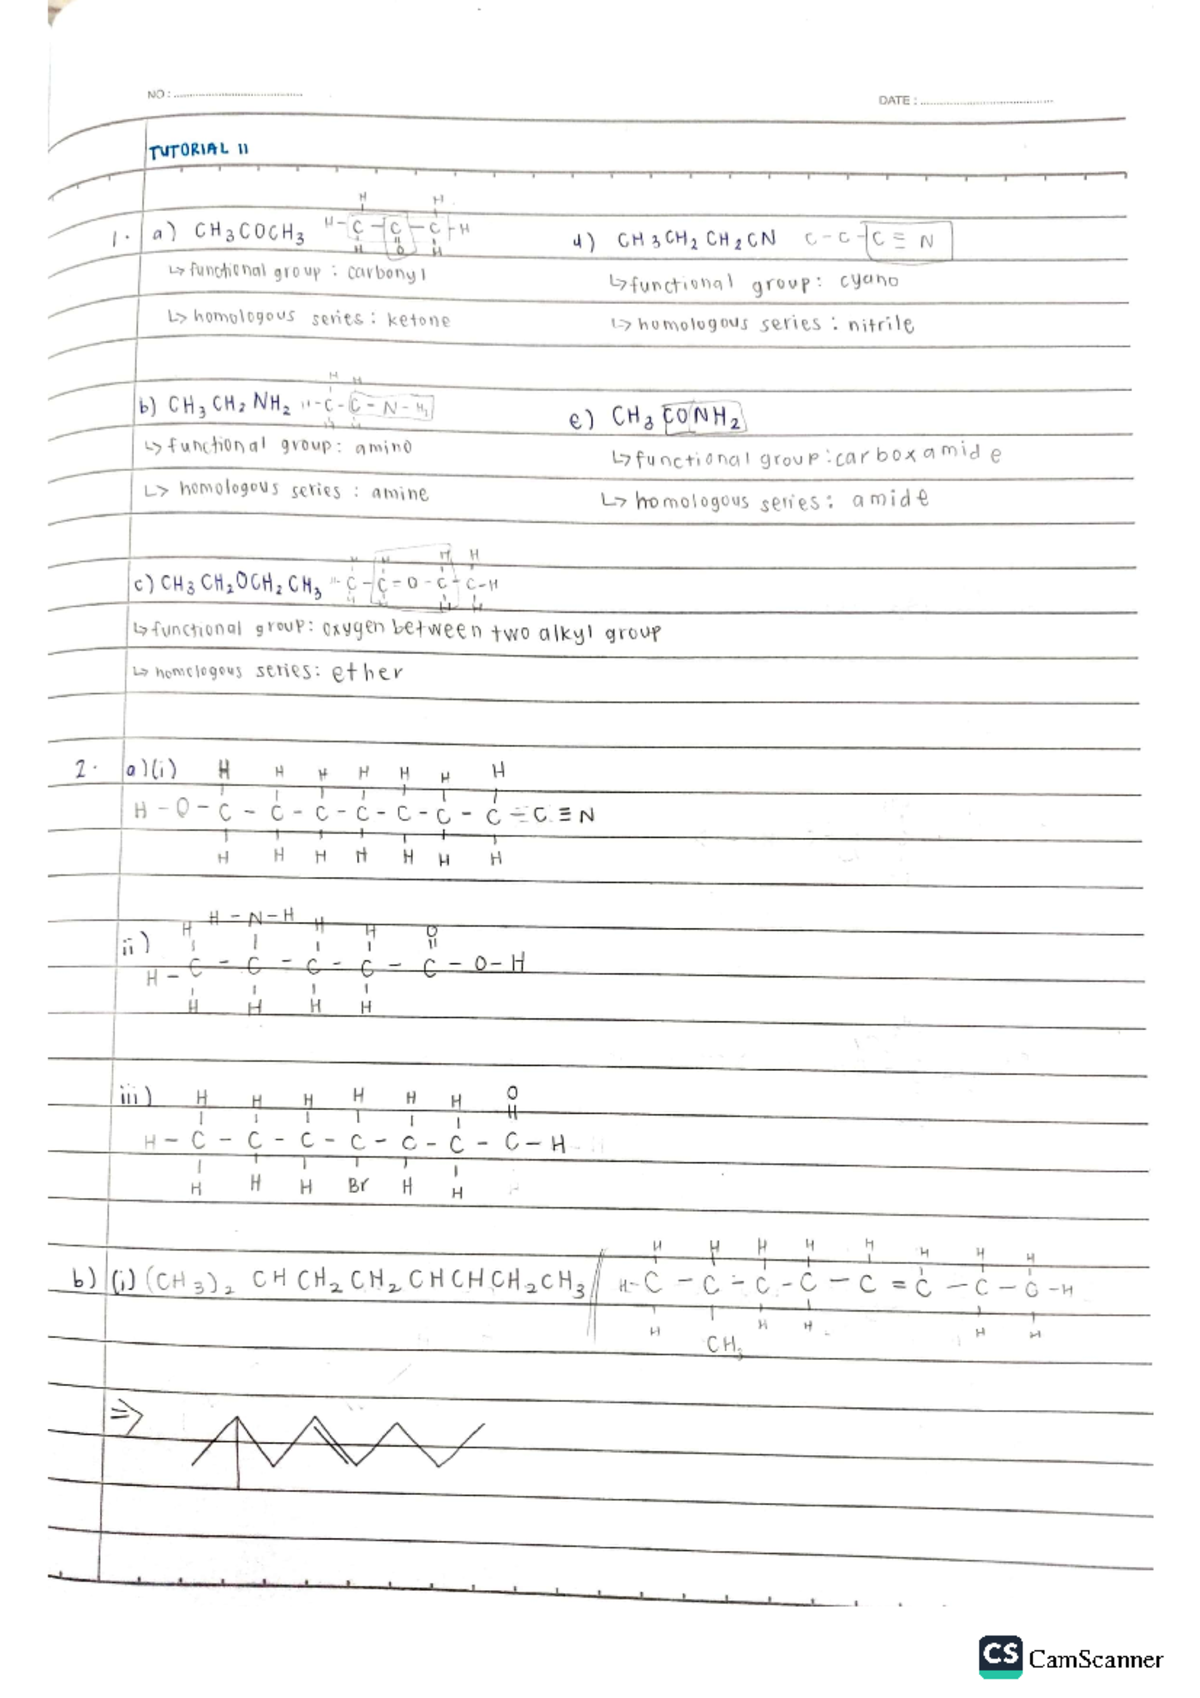 NO :
DATE :
TUTORIAL 11
1. a) CH3COCH3
↳ functional group : carbonyl
↳ homologous series : ketone
d) CH3CH2CH2CN C-C-C≡N
↳ functional group : cyano
↳ homologous series : nitrile
b) CH3CH2NH2
↳ functional group : amino
↳ homologous series : amine
e) CH3CONH2
↳ functional group : carboxamide
↳ homologous series : amide
c) CH3CH2OCH2CH3
↳ functional group : oxygen between two alkyl group
↳ homologous series : ether
2. a)(i) H H H H H H H
H-O-C-C-C-C-C-C-C-C≡N
H H H H H H H
ii) H H-N-H H H O
H-C-C-C-C-C-O-H
H H H H
iii) H H H H H H O
H-C-C-C-C-C-C-C-H
H H H Br H H
b) (i) (CH3)2CHCH2CH2CHCHCH2CH3
H H H H H H H H
H-C-C-C-C-C=C-C-C-H
H H H H H
CH3
⇒
CS CamScanner